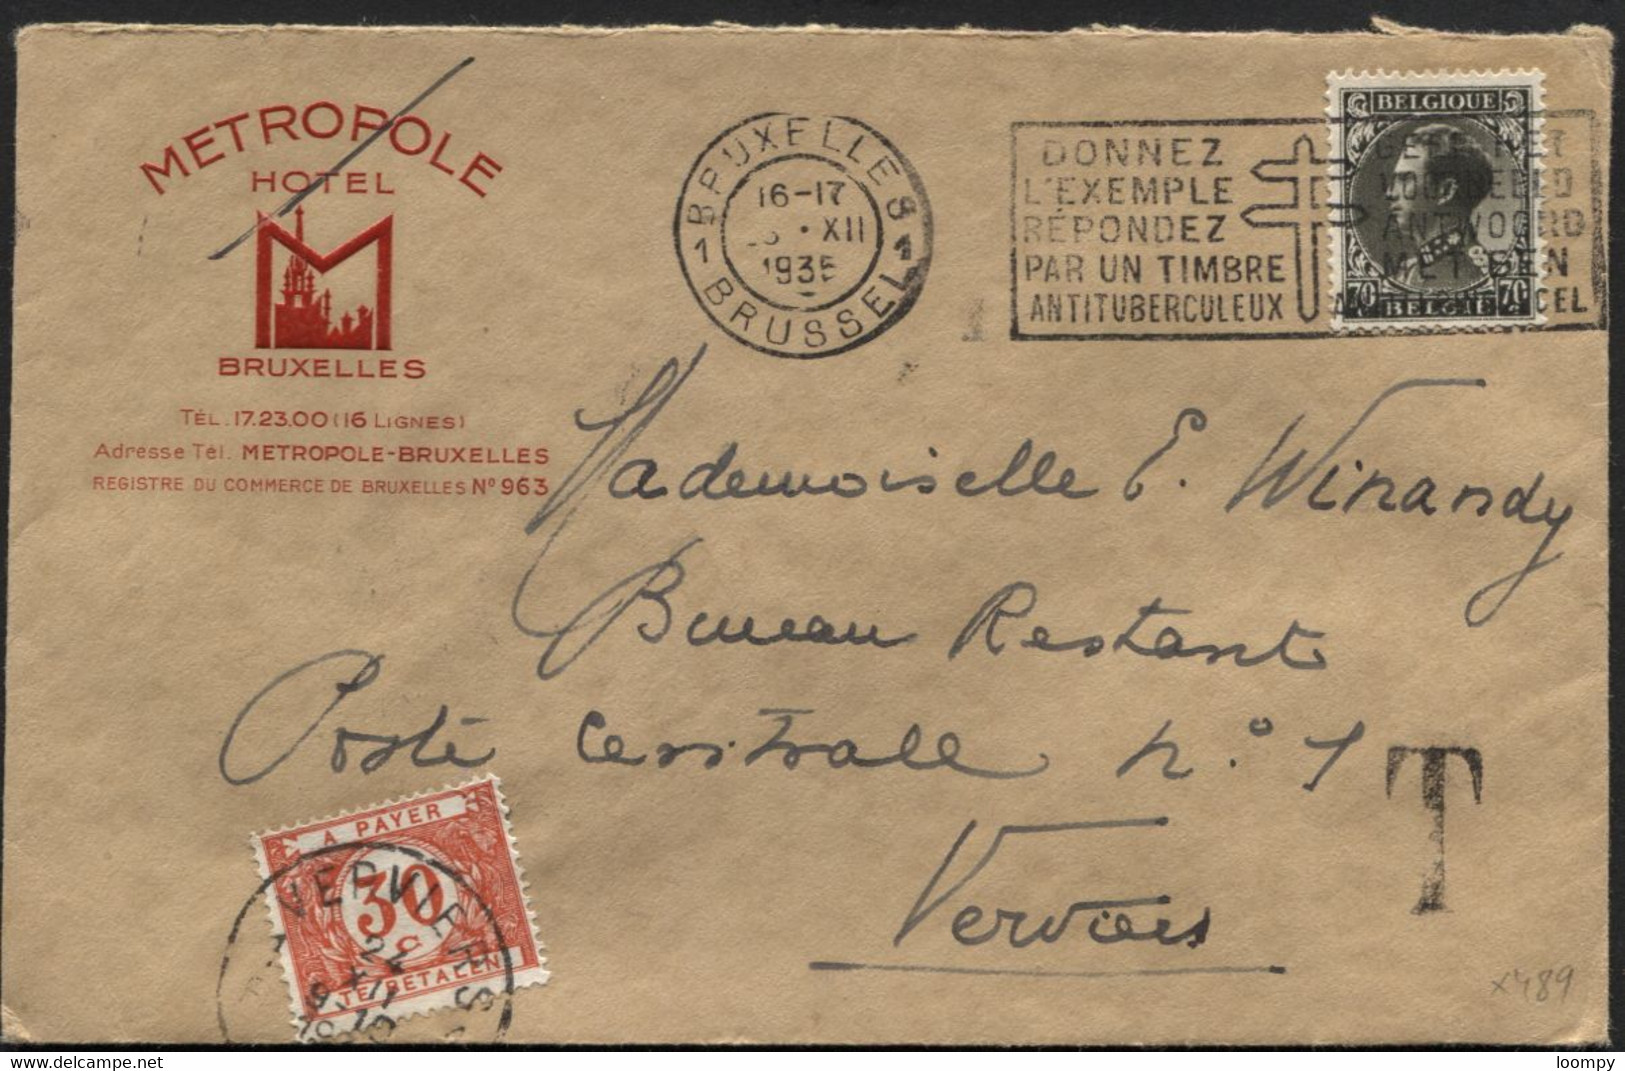 METROPOLE
HOTEL
M
BRUXELLES
TÉL. 17.23.00 (16 LIGNES)
Adresse Tél. METROPOLE-BRUXELLES
REGISTRE DU COMMERCE DE BRUXELLES Nº 963
BRUXELLES
16-17
XII
1935
1 1
BRUSSEL
DONNEZ
L'EXEMPLE
RÉPONDEZ
PAR UN TIMBRE
ANTITUBERCULEUX
GEEF HET
VOORBEELD
ANTWOORD
MET EEN
BELGIQUE
70c 70c
BELGIE
Mademoiselle E. Winandy
Bureau Restant
Poste Centrale n.º 1
Verviers
T
A PAYER
30
c
TE BETALEN
VERVIERS
22
XII
x489
loompy